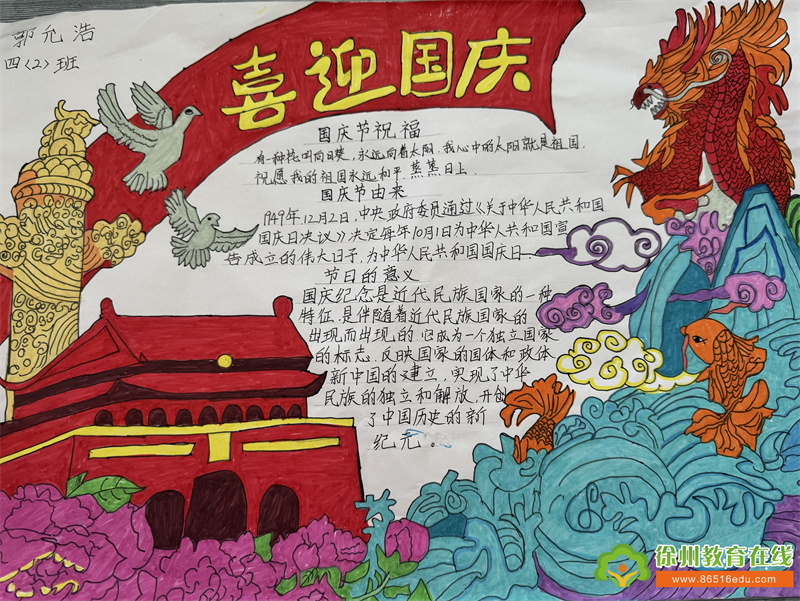 郭允浩
四（2）班
喜迎国庆
国庆节祝福
有一种花叫向日葵，永远向着太阳，我心中的太阳就是祖国.
祝愿我的祖国永远和平.蒸蒸日上.
国庆节由来
1949年12月2日，中央政府委员通过《关于中华人民共和国
国庆日决议》决定每年10月1日为中华人民共和国宣
告成立的伟大日子，为中华人民共和国国庆日.
节日的意义
国庆纪念是近代民族国家的一种
特征，是伴随着近代民族国家的
出现而出现的.它成为一个独立国家
的标志，反映国家的国体和政体
新中国的建立，实现了中华
民族的独立和解放，开创
了中国历史的新
纪元。
徐州教育在线
www.86516edu.com